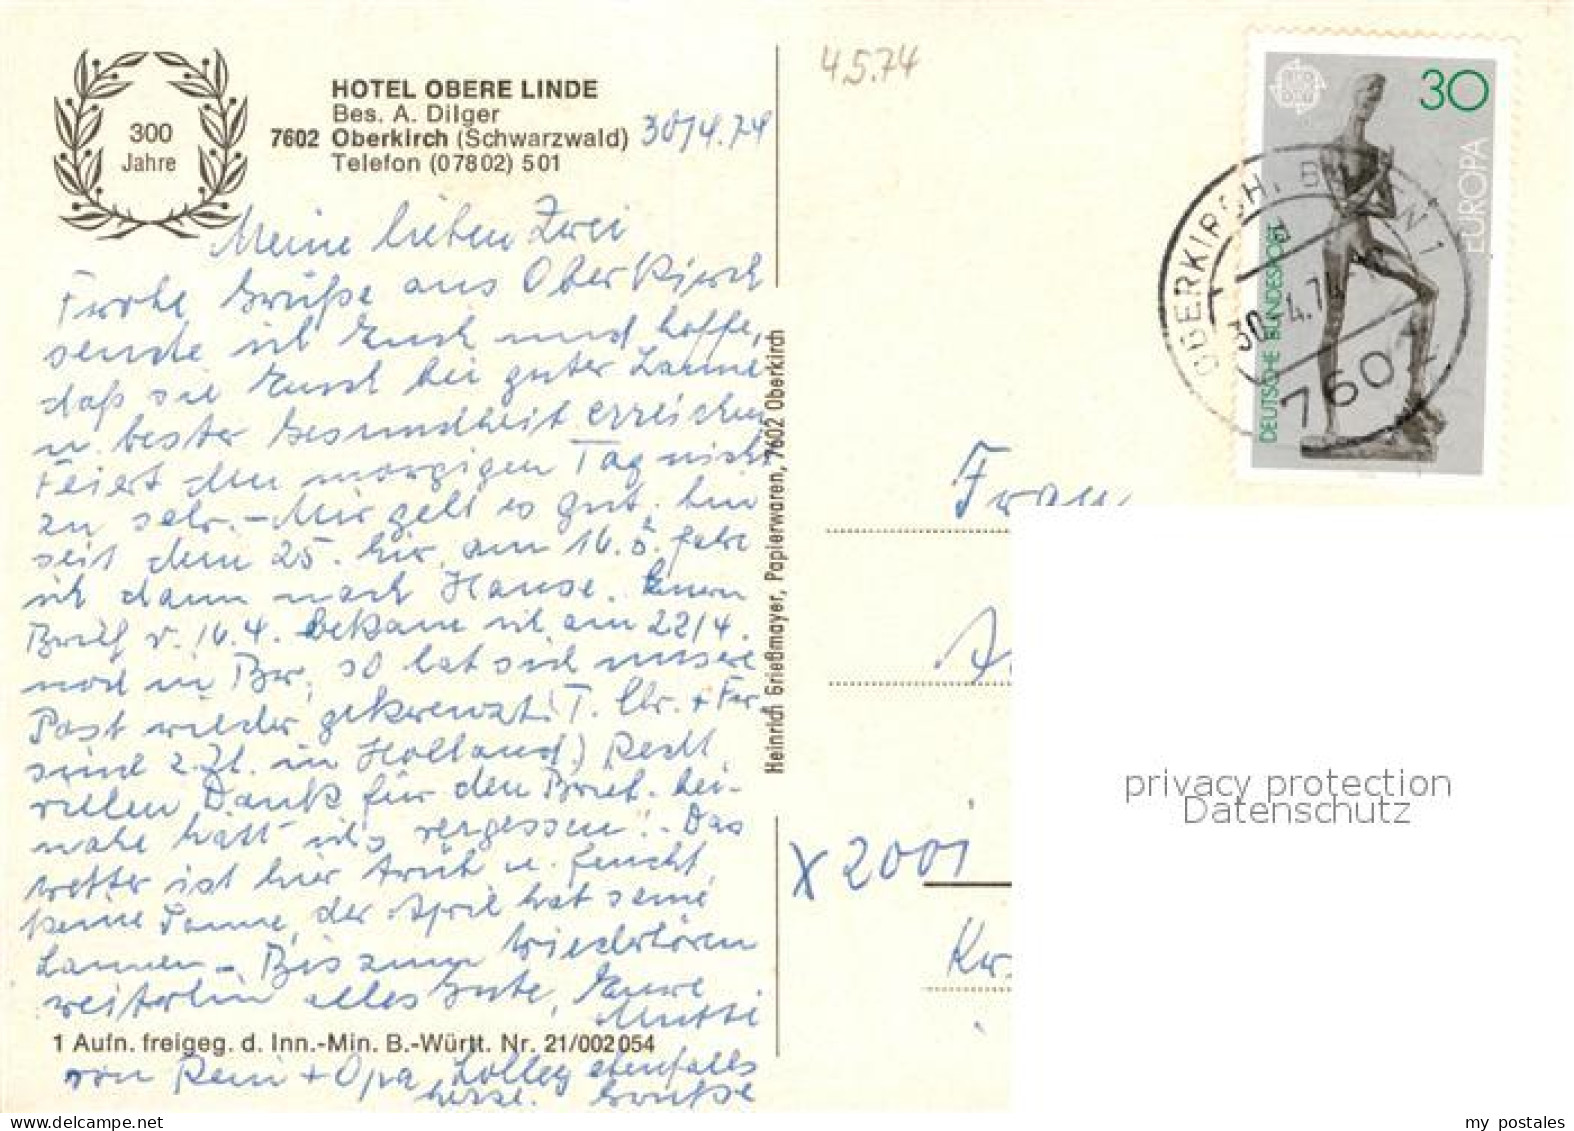 300
Jahre
HOTEL OBERE LINDE
Bes. A. Dilger
7602 Oberkirch (Schwarzwald)
Telefon (07802) 501
30/4.74
Meine lieben Zwei
Frohe Grüße aus Oberkirch
sende ich Euch und hoffe,
daß sie Euch bei guter Laune
u. bester Gesundheit erreichen
Feiert den morgigen Tag nicht
zu sehr. - Mir geht es gut, bin
seit dem 25. hier, am 16.5. fahre
ich dann nach Hause. Euren
Brief v. 16.4. bekam ich am 22/4.
noch in Br., so hat sich unsere
Post wieder gekreuzt! T. Chr. + Fr
sind z. Zt. in Holland) Recht
vielen Dank für den Brief. bei-
nahe hätt ich's vergessen! - Das
Wetter ist hier trüb u. feucht,
keine Sonne, der April hat seine
Launen - Bis zum Wiederhören
weiterhin alles Gute, Eure
Mutti
1 Aufn. freigeg. d. Inn.-Min. B.-Württ. Nr. 21/002054
von Opa, ebenfalls
herzl. Grüße
Heinrich Grießmayer, Papierwaren, 7602 Oberkirch
4.5.74
30
EUROPA
DEUTSCHE BUNDESPOST
OBERKIRCH, BADEN 1
30.-4.74
7602
Frau
X 2001
Kr.
privacy protection
Datenschutz
my postales